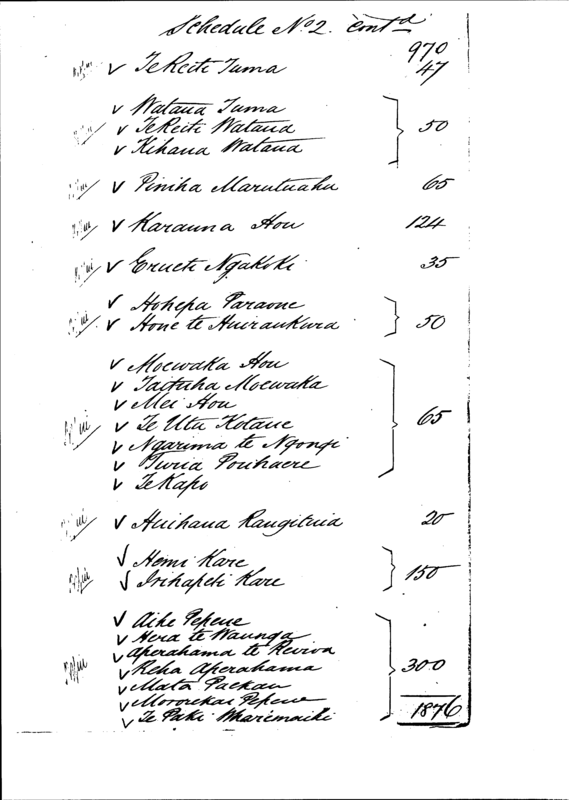 Schedule No 2. contd
970
✓ Te Reiti Tuma 47
✓ Wataua Tuma
✓ Te Reiti Wataua 50
✓ Kihana Wataua
✓ Piniha Marutuahu 65
✓ Karauna Hou 124
✓ Erueti Ngakoki 35
✓ Hohepa Paraone
✓ Hone te Huiraukura 50
✓ Moewaka Hou
✓ Taituha Moewaka
✓ Mei Hou
✓ Te Utu Kotaue 65
✓ Ngarima te Ngongi
✓ Turia Porihaere
✓ Te Kapo
✓ Huihana Rangituia 20
✓ Hemi Kare
✓ Irihapeti Kare 150
✓ Aihe Pepene
✓ Hera te Waunga
✓ Aperahama te Reiroa
✓ Reha Aperahama 300
✓ Mata Paekau
✓ Mororekai Pepene
✓ Te Paki Wharemaihi 1876